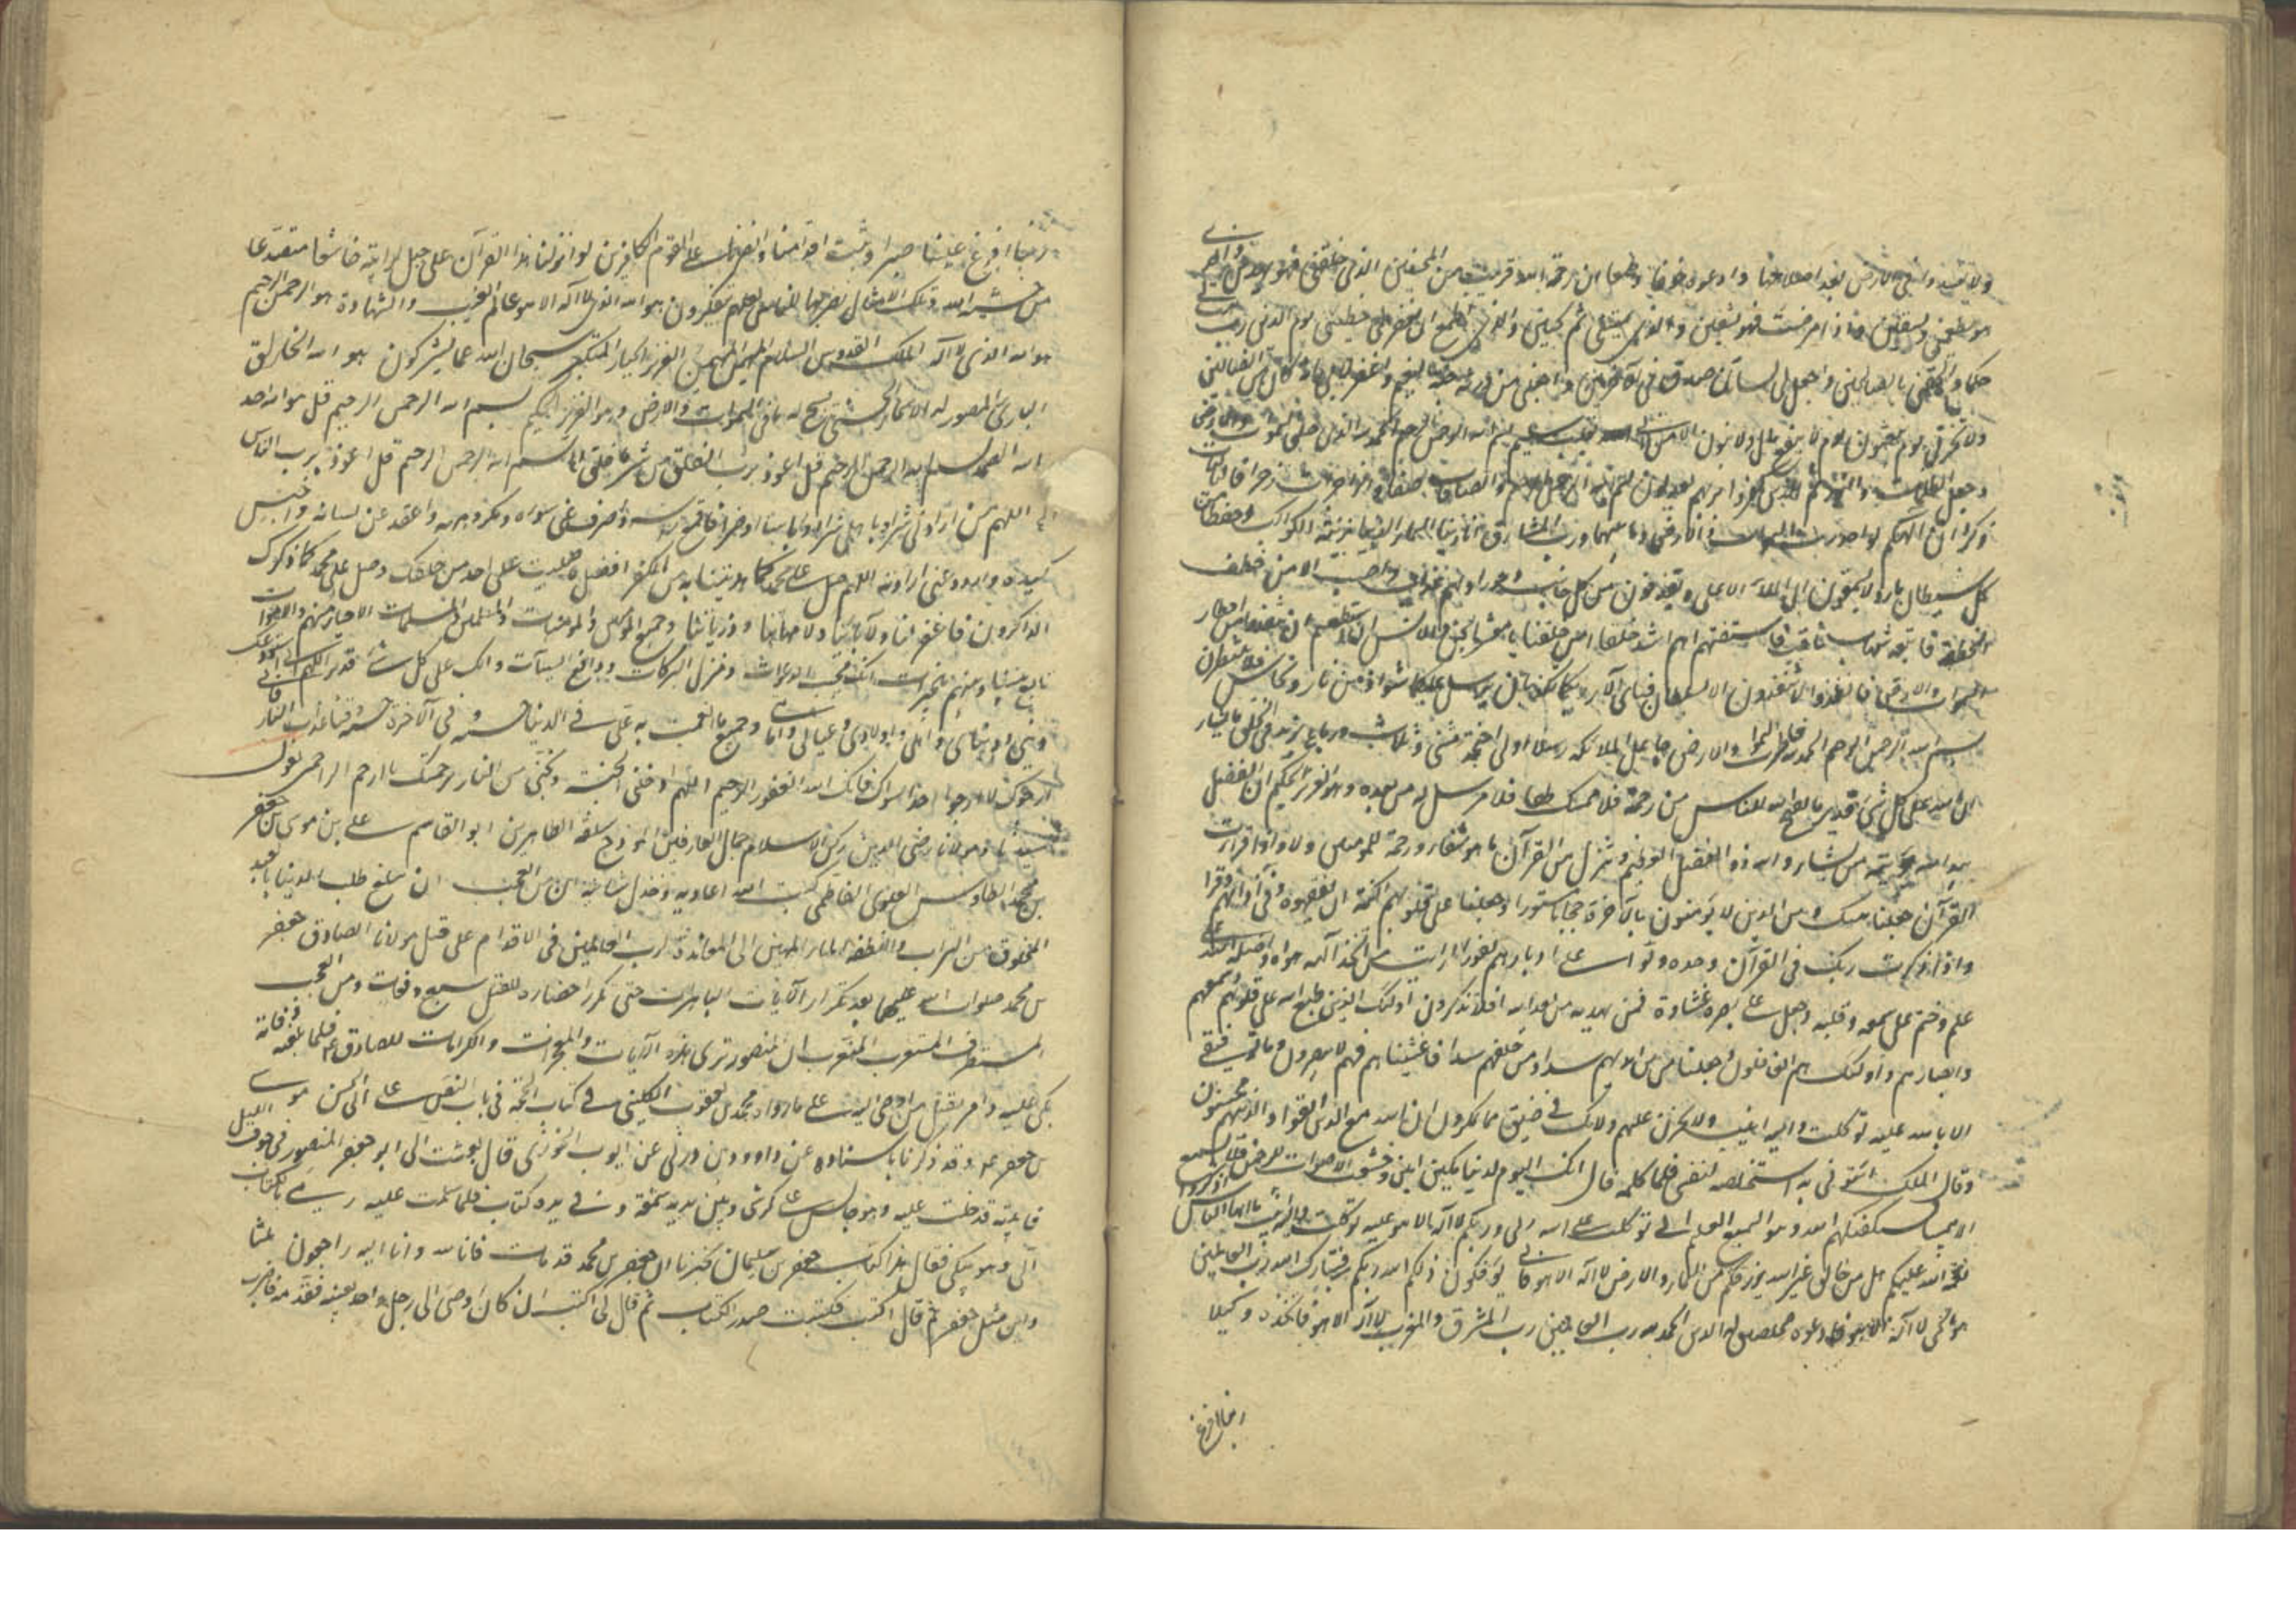 ولا تفسدوا فی الارض بعد اصلاحها وادعوه خوفا وطمعا ان رحمة الله قریب من المحسنین الذی خلقنی فهو یهدین والذی
هو یطعمنی ویسقین واذا مرضت فهو یشفین والذی یمیتنی ثم یحیین والذی اطمع ان یغفر لی خطیئتی یوم الدین رب هب لی
حکما والحقنی بالصالحین واجعل لی لسان صدق فی الآخرین واجعلنی من ورثة جنة النعیم واغفر لابی انه کان من الضالین
ولا تخزنی یوم یبعثون یوم لا ینفع مال ولا بنون الا من اتی الله بقلب سلیم بسم الله الرحمن الرحیم الحمد لله الذی خلق السموات والارض
وجعل الظلمات والنور ثم الذین کفروا بربهم یعدلون بسم الله الرحمن الرحیم والصافات صفا فالزاجرات زجرا فالتالیات
ذکرا ان الهکم لواحد رب السموات والارض وما بینهما ورب المشارق انا زینا السماء الدنیا بزینة الکواکب وحفظا من
کل شیطان مارد لا یسمعون الی الملأ الاعلی ویقذفون من کل جانب دحورا ولهم عذاب واصب الا من خطف
الخطفة فاتبعه شهاب ثاقب فاستفتهم اهم اشد خلقا ام من خلقنا یا معشر الجن والانس ان استطعتم ان تنفذوا من اقطار
السموات والارض فانفذوا لا تنفذون الا بسلطان فبای آلاء ربکما تکذبان یرسل علیکما شواظ من نار ونحاس فلا تنتصران
بسم الله الرحمن الرحیم الحمد لله فاطر السموات والارض جاعل الملائکة رسلا اولی اجنحة مثنی وثلاث ورباع یزید فی الخلق ما یشاء
ان الله علی کل شیء قدیر ما یفتح الله للناس من رحمة فلا ممسک لها فلا مرسل له من بعده وهو العزیز الحکیم ان الفضل
بید الله یؤتیه من یشاء والله ذو الفضل العظیم وننزل من القرآن ما هو شفاء ورحمة للمومنین واذا قرأت
القرآن جعلنا بینک وبین الذین لا یؤمنون بالآخرة حجابا مستورا وجعلنا علی قلوبهم اکنة ان یفقهوه وفی آذانهم وقرا
واذا ذکرت ربک فی القرآن وحده ولوا علی ادبارهم نفورا افرایت من اتخذ الهه هواه واضله الله علی
علم وختم علی سمعه وقلبه وجعل علی بصره غشاوة فمن یهدیه من بعد الله افلا تذکرون اولئک الذین طبع الله علی قلوبهم وسمعهم
وابصارهم واولئک هم الغافلون وجعلنا من بین ایدیهم سدا ومن خلفهم سدا فاغشیناهم فهم لا یبصرون وما توفیقی
الا بالله علیه توکلت والیه انیب ولا تحزن علیهم ولا تک فی ضیق مما یمکرون ان الله مع الذین اتقوا والذین هم محسنون
وقال الملک ائتونی به استخلصه لنفسی فلما کلمه قال انک الیوم لدینا مکین امین وخشعت الاصوات للرحمن فلا تسمع
الا همسا فسیکفیکهم الله وهو السمیع العلیم انی توکلت علی الله ربی وربکم لا اله الا هو علیه توکلت والیه انیب یا ایها الناس اذکروا
نعمة الله علیکم هل من خالق غیر الله یرزقکم من السماء والارض لا اله الا هو فانی تؤفکون ذلکم الله ربکم فتبارک الله رب العالمین
هو الحی لا اله الا هو فادعوه مخلصین له الدین الحمد لله رب العالمین رب المشرق والمغرب لا اله الا هو فاتخذه وکیلا
ربنا افرغ
ربنا افرغ علینا صبرا وثبت اقدامنا وانصرنا علی القوم الکافرین لو انزلنا هذا القرآن علی جبل لرایته خاشعا متصدعا
من خشیة الله وتلک الامثال نضربها للناس لعلهم یتفکرون هو الله الذی لا اله الا هو عالم الغیب والشهادة هو الرحمن الرحیم
هو الله الذی لا اله الا هو الملک القدوس السلام المومن المهیمن العزیز الجبار المتکبر سبحان الله عما یشرکون هو الله الخالق
الباری المصور له الاسماء الحسنی یسبح له ما فی السموات والارض وهو العزیز الحکیم بسم الله الرحمن الرحیم قل هو الله احد
الله الصمد بسم الله الرحمن الرحیم قل اعوذ برب الفلق من شر ما خلق بسم الله الرحمن الرحیم قل اعوذ برب الناس
اللهم من ارادنی شرا او باهلی شرا او باسا او ضرا فاقمع راسه واصرف عنی سوءه ومکروهه واعقد عنی لسانه واحبس
کیده واردد عنی ارادته اللهم صل علی محمد کما هدیتنا به من الکفر افضل ما صلیت علی احد من خلقک وصل علی محمد کما ذکرک
الذاکرون فاغفر لنا ولآبائنا ولامهاتنا وذریاتنا وجمیع المومنین والمومنات والمسلمین والمسلمات الاحیاء منهم والاموات
تابع بیننا وبینهم بالخیرات انک مجیب الدعوات ومنزل البرکات ودافع السیآت وانک علی کل شیء قدیر اللهم انی استودعک
دینی ودنیای واهلی واولادی وعیالی وامانتی وجمیع ما انعمت به علی فی الدنیا حسنة وفی الآخرة حسنة وقنا عذاب النار
ارجوک ولا ارجو احدا سواک فانک الله الغفور الرحیم اللهم ادخلنی الجنة ونجنی من النار برحمتک یا ارحم الراحمین یقول
سیدنا ومولانا رضی الدین رکن الاسلام جمال العارفین انموذج سلفه الطاهرین ابو القاسم علی بن موسی بن جعفر
بن محمد الطاوس العلوی الفاطمی کبت الله اعادیه وخذل شانیه ان من العجب ان یبلغ طلب الدنیا بالعبد
المخلوق من التراب والنطفة الماء المهین الی المعاندة لرب العالمین فی الاقدام علی قتل مولانا الصادق جعفر
بن محمد صلوات الله علیهما بعد تکرار الآیات الباهرات حتی کرر احضاره للقتل سبع دفعات ومن العجب
المستطرف المستغرب ان المنصور تری هذه الآیات والمعجزات والکرامات للصادق ع فلما بلغه وفاته
بکی علیه وامر بقتل من اوصی الیه علی ما رواه محمد بن یعقوب الکلینی فی کتاب الحجة فی باب النص علی ابی الحسن موسی
بن جعفر ع وقد ذکرنا باسناده عن داوود بن زربی عن ایوب الخوزی قال بعث الی ابو جعفر المنصور فی جوف اللیل
فاتیته فدخلت علیه وهو جالس علی کرسی وبین یدیه شمعة وفی یده کتاب فلما سلمت علیه رمی بالکتاب
الی وهو یبکی فقال هذا کتاب جعفر بن سلیمان یخبرنا ان جعفر بن محمد قد مات فانا لله وانا الیه راجعون ثلثا
واین مثل جعفر ثم قال اکتب فکتبت صدر الکتاب ثم قال لی اکتب ان کان اوصی الی رجل واحد بعینه فقدمه فاضرب